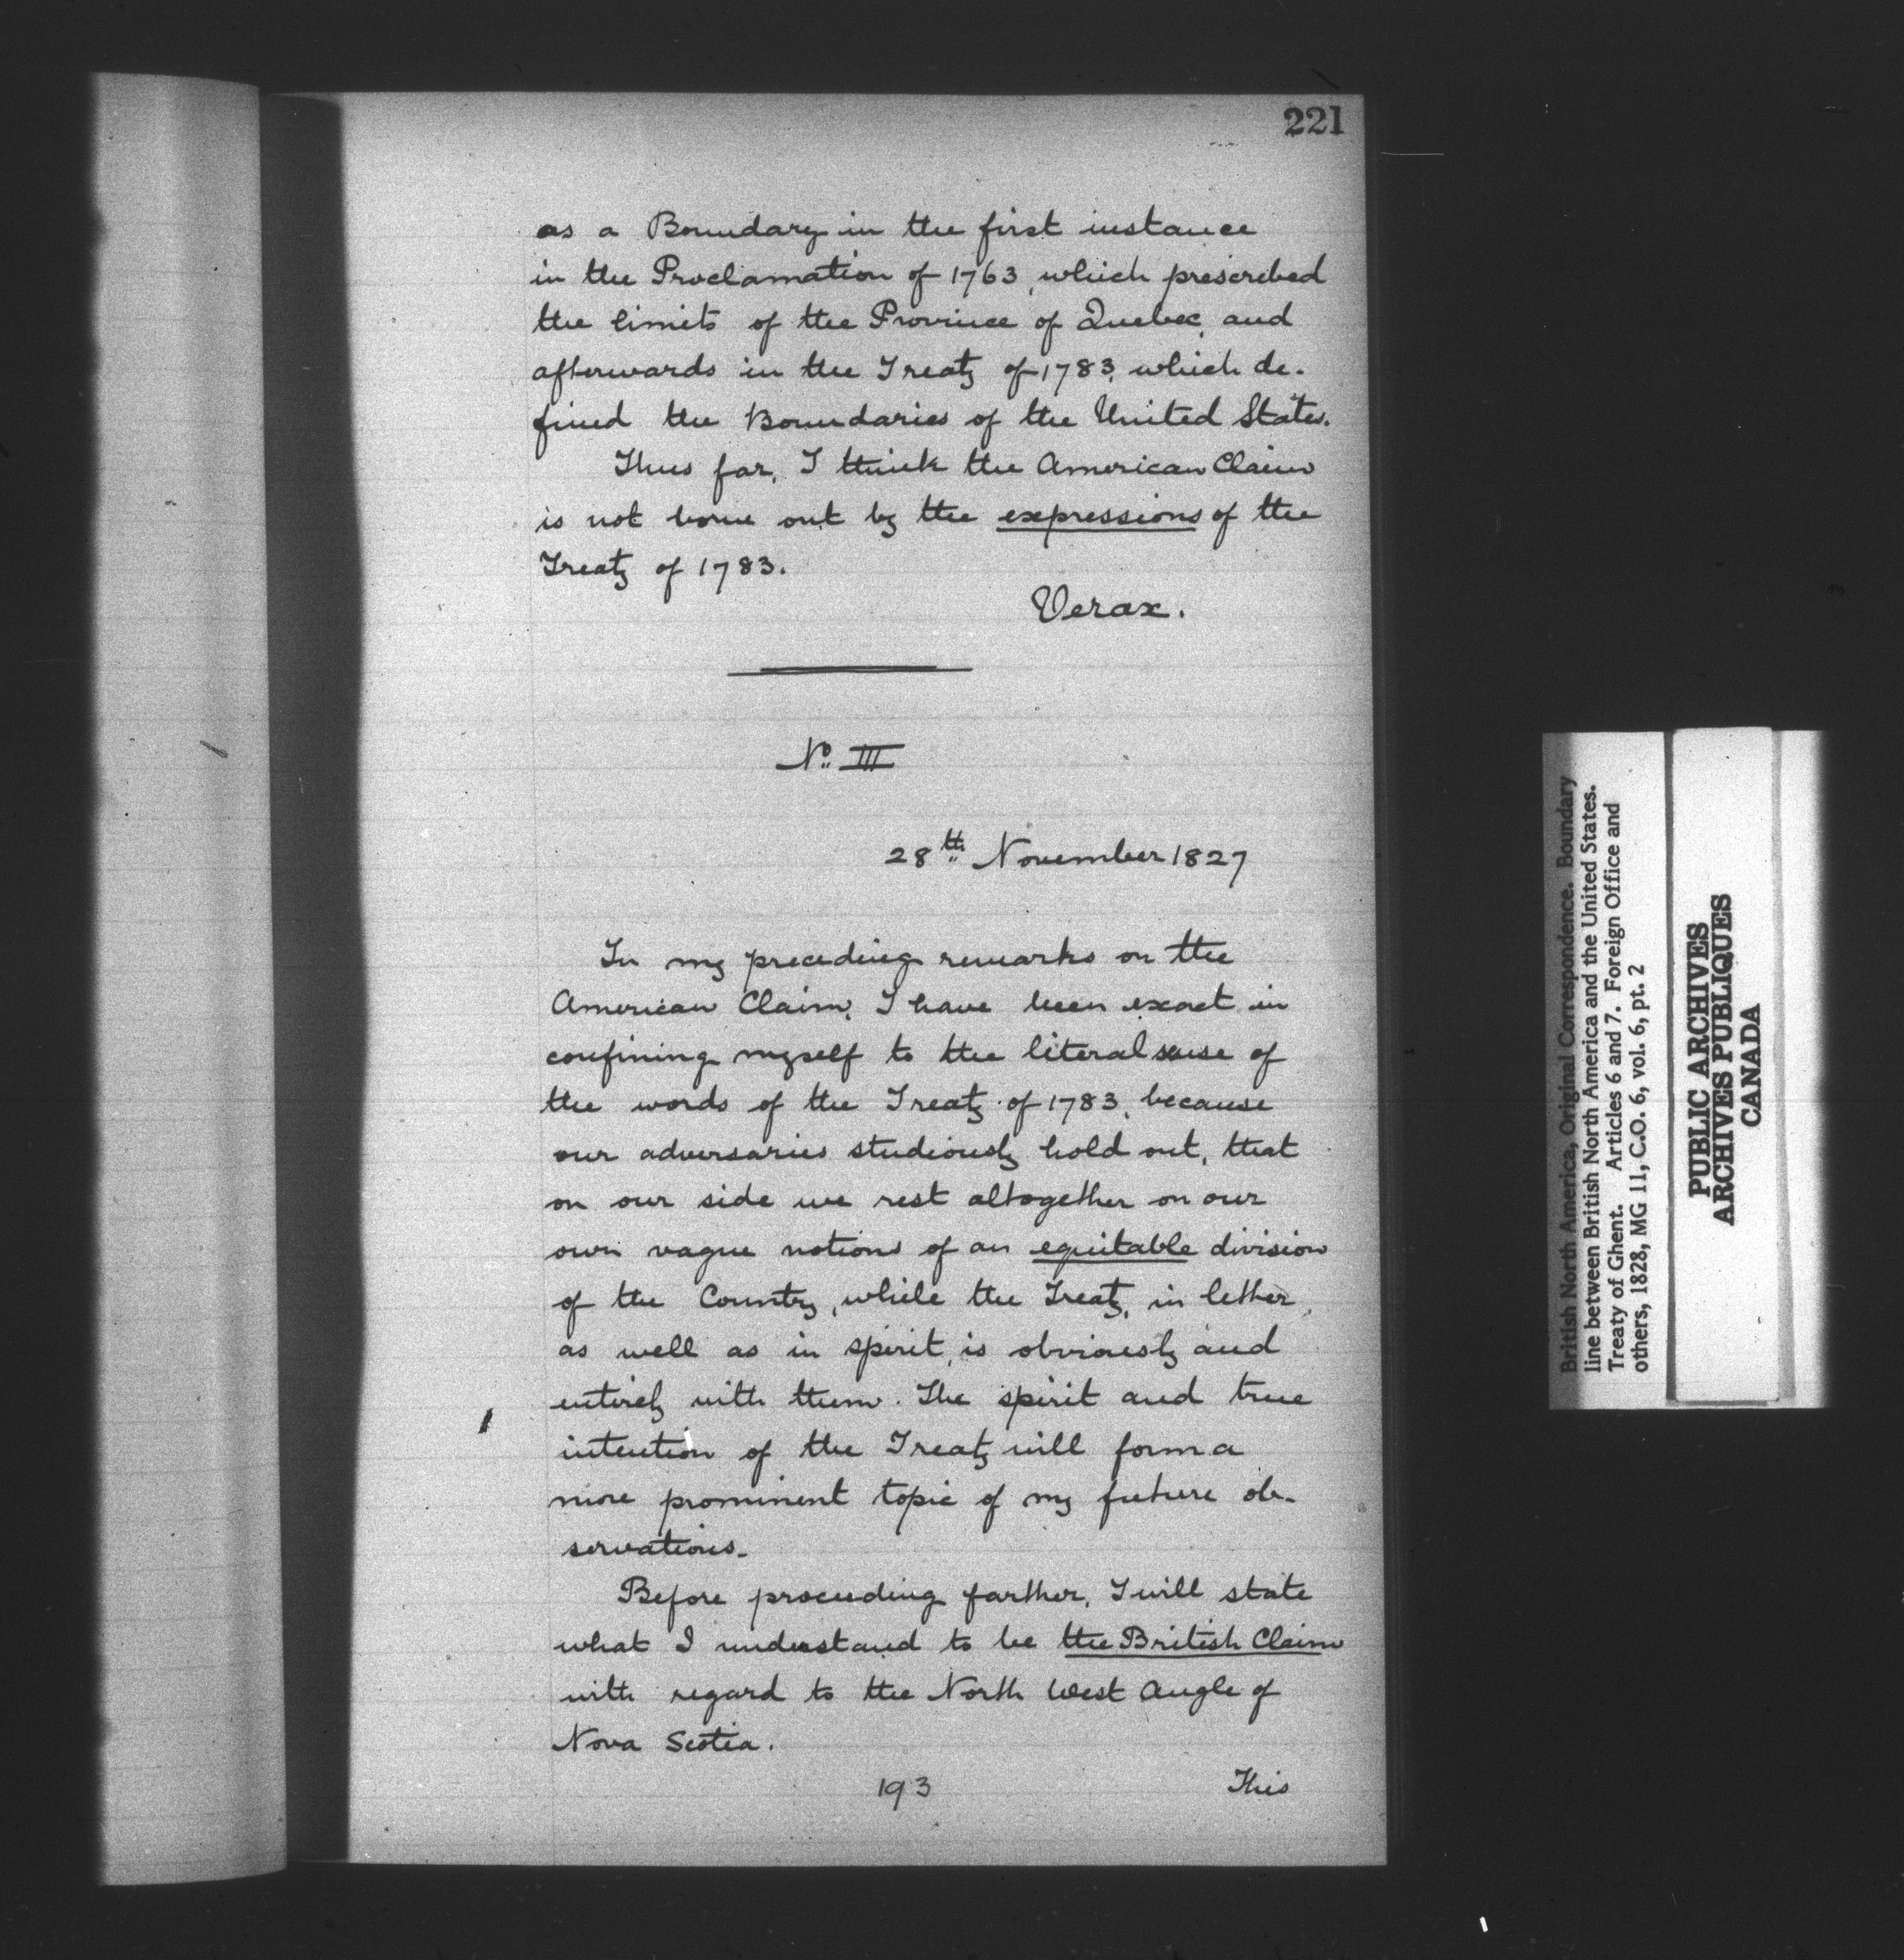 221
as a Boundary in the first instance
in the Proclamation of 1763, which prescribed
the limits of the Province of Quebec, and
afterwards in the Treaty of 1783, which de-
fined the Boundaries of the United States.
Thus far, I think the American Claim
is not borne out by the expressions of the
Treaty of 1783.
Verax.
No. III
28th November 1827
In my preceding remarks on the
American Claim, I have been exact in
confining myself to the literal sense of
the words of the Treaty of 1783, because
our adversaries studiously hold out, that
on our side we rest altogether on our
own vague notions of an equitable division
of the Country, while the Treaty, in letter,
as well as in spirit, is obviously and
entirely with them. The spirit and true
intention of the Treaty will form a
more prominent topic of my future ob-
servations.
Before proceeding farther, I will state
what I understand to be the British Claim
with regard to the North West Angle of
Nova Scotia.
193
This
British North America, Original Correspondence. Boundary
line between British North America and the United States.
Treaty of Ghent. Articles 6 and 7. Foreign Office and
others, 1828, MG 11, C.O. 6, vol. 6, pt. 2
PUBLIC ARCHIVES
ARCHIVES PUBLIQUES
CANADA